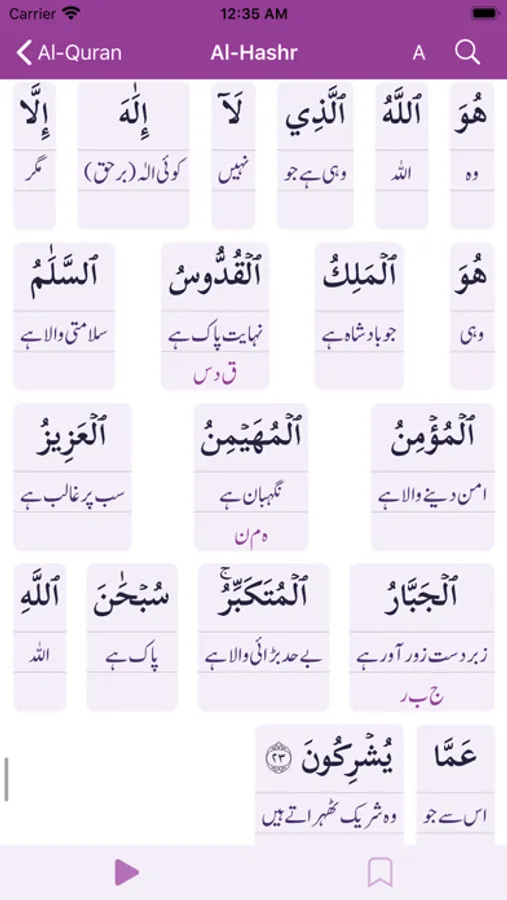 Carrier 12:35 AM
Al-Quran Al-Hashr A
هُوَ ٱللَّهُ ٱلَّذِي لَآ إِلَٰهَ إِلَّا
وہ اللہ وہی ہے جو نہیں کوئی الٰہ (برحق) مگر
هُوَ ٱلۡمَلِكُ ٱلۡقُدُّوسُ ٱلسَّلَٰمُ
وہی جو بادشاہ ہے نہایت پاک ہے سلامتی والا ہے
ق د س
ٱلۡمُؤۡمِنُ ٱلۡمُهَيۡمِنُ ٱلۡعَزِيزُ
امن دینے والا ہے نگہبان ہے سب پر غالب ہے
ہ م ن
ٱلۡجَبَّارُ ٱلۡمُتَكَبِّرُۚ سُبۡحَٰنَ ٱللَّهِ
زبردست زور آور ہے بے حد بڑائی والا ہے پاک ہے اللہ
ج ب ر
عَمَّا يُشۡرِكُونَ ٢٣
اس سے جو وہ شریک ٹھہراتے ہیں